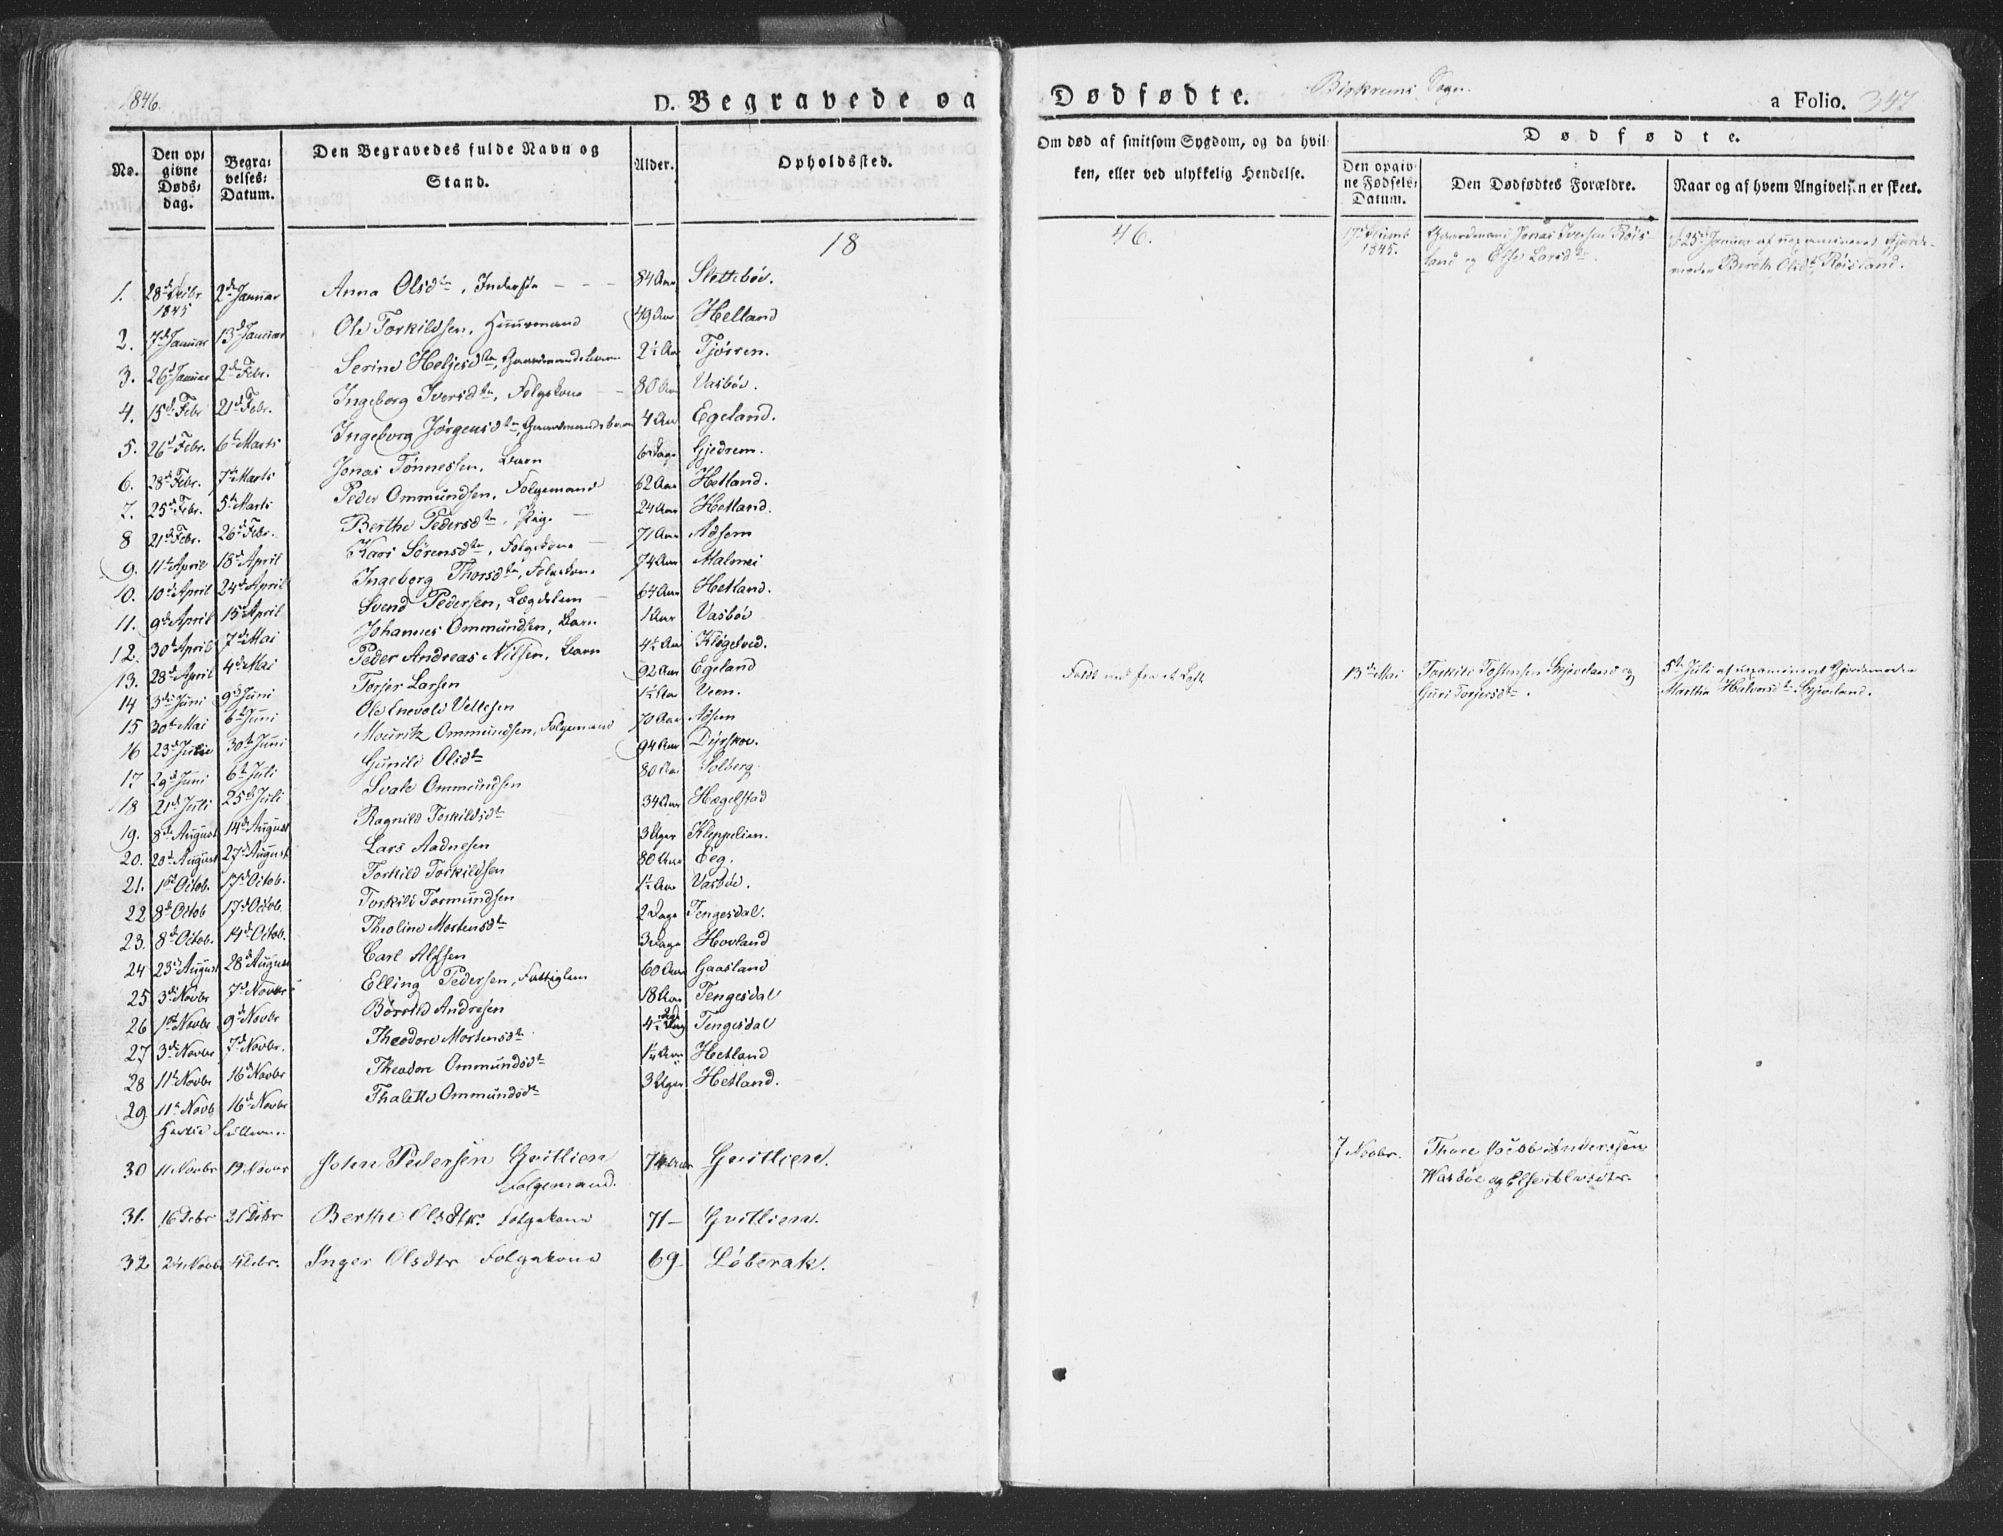 1846.
D. Begravede og
No.
Den opgivne Dødsdag.
Begravelses-Datum.
Den Begravedes fulde Navn og Stand.
Alder.
Opholdssted.
18
1. 28de Decbr 1845 2den Januar Anna Olsdtr, Inderste 84 Aar Slettebøv.
2. 7de Januar 13de Januar Ole Torkildsen, Huusmand 49 Aar Helland
3. 26de Januar 2den Febr. Serine Heljesdtr, Gaardmandsbarn 2½ Aar Tjørren.
4. 15de Febr 21de Febr. Ingeborg Iversdtr, Folgekone 80 Aar Vasbøv.
5. 26de Febr. 6te Marts Ingeborg Jørgensdtr, Gaardmandsbarn 4 Aar Egeland.
6. 28de Febr. 7de Marts Jonas Tønnessen, Barn 6 Dage Gjedrem.
7. 25de Febr. 5te Marts Peder Ommundsen, Folgemand 62 Aar Hetland.
8 21de Febr. 26de Febr. Berthe Pedersdtr, Pige 24 Aar Hetland.
9. 11te April 18de April Kari Sørensdtr, Folgekone 71 Aar Adsem
10. 10de April 24de April Ingeborg Thorsdtr, Folgekone 74 Aar Malmei
11. 9de April 15de April Svend Pedersen, Lægdslem 64 Aar Hetland.
12. 30de April 7de Mai Johannes Ommundsen, Barn 1 Aar Vasbøv
13. 28de April 4de Mai Peder Andreas Nilsen, Barn 4½ Aar Kløgetved.
14 3die Juni 9de Juni Torger Larsen 92 Aar Egeland
15 30te Mai 6te Juni Ole Enevold Vellesen 1½ Aar Veen.
16 23de Julie 30te Juni Mouritz Ommundsen, Folgemand 70 Aar Adsem
17. 29de Juni 6te Juli Gunild Olsdtr 94 Aar Dyrskov.
18 21de Juli 25de Juli Svale Ommundsen 80 Aar Solberg.
19. 8de August 14de August Ragnild Torkildsdtr 34 Aar Hægelstad
20. 20de August 27de August Lars Aadnesen 3 Uger Kleppelien.
21. 1ste Octob. 17de Octob. Torkild Torkildsen 80 Aar Eeg.
22 8de Octob 17de Octob. Torkild Tormundsen 1½ Aar Vasbøe.
23. 8de Octob. 14de Octob. Theoline Mortensdtr 2 Dage Tengesdal.
24 23de August 28de August Carl Alfsen 3 Dage Hovland
25 3die Novbr 7de Novbr Elling Pedersen, Fattiglem 60 Aar Gaasland
26 1ste Novbr 9de Novbr Børild Andresen 18 Aar Tengesdal
27 3die Novbr 7de Novbr. Theodore Mortensdtr 4½ Tengesdal
28 11te Novbr 16de Novbr Theodore Ommundsdtr 1¼ Aar Hetland
29 11te Novb 16de Novbr Thalette Ommundsdtr 3 Uger Hetland.
30 11 Novbr 19 Novbr John Pedersen Gvitlien 74 Aar Gvitlien.
Folgemand.
31. 16 Debr 21 Debr Berthe Olsdtr. Folgekone 71 – Gvitlien.
32 24 Novbr 4 Debr. Inger Olsdtr Folgekone 69 – Løberak.
Dødfødte.
Birkrems Sogn.
a Folio. 347
Om død af smitsom Sygdom, og da hvilken, eller ved ulykkelig Hendelse.
Dødfødte.
Den opgivne Fødsels-Datum.
Den Dødfødtes Forældre.
Naar og af hvem Angivelsen er skeet.
46.
17de Decemb 1845. Gaardmand Jonas Iversen Røisland og Else Larsdtr. 25de Januar af uexamineret Gjordemoder Bereth Olsdtr Røisland.
Faldt ned fra et Loft
13de Mai Torkild Tostensen Skjeveland og Guri Torgersdtr. 5te Juli af uexamineret Gjordemoder Martha Halvorsdtr Skjeveland.
7 Novbr. Thore Jacob Anderssen
Wasbøe og Else Alvsdtr.